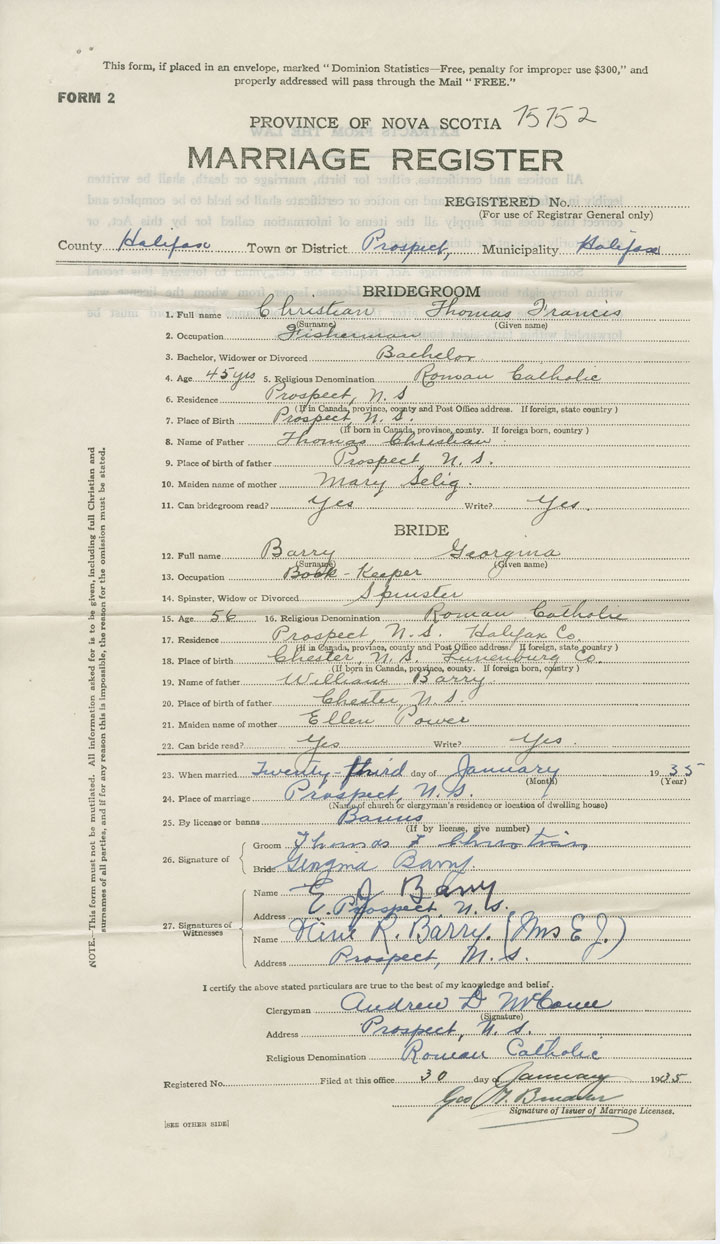 This form, if placed in an envelope, marked "Dominion Statistics—Free, penalty for improper use $300," and
properly addressed will pass through the Mail "FREE."
FORM 2
PROVINCE OF NOVA SCOTIA 15752
MARRIAGE REGISTER
REGISTERED No.
(For use of Registrar General only)
County Halifax Town or District Prospect, Municipality Halifax
BRIDEGROOM
1. Full name Christian Thomas Francis
(Surname) (Given name)
2. Occupation Fisherman
3. Bachelor, Widower or Divorced Bachelor
4. Age 45 yrs 5. Religious Denomination Roman Catholic
6. Residence Prospect, N. S
(If in Canada, province, county and Post Office address. If foreign, state country)
7. Place of Birth Prospect, N. S.
(If born in Canada, province, county. If foreign born, country)
8. Name of Father Thomas Christian
9. Place of birth of father Prospect, N. S.
10. Maiden name of mother Mary Selig.
11. Can bridegroom read? Yes Write? Yes.
BRIDE
12. Full name Barry Georgina
(Surname) (Given name)
13. Occupation Book-Keeper
14. Spinster, Widow or Divorced Spinster
15. Age 56 16. Religious Denomination Roman Catholic
17. Residence Prospect, N. S. Halifax Co.
(If in Canada, province, county and Post Office address. If foreign, state country)
18. Place of birth Chester, N. S. Lunenburg Co.
(If born in Canada, province, county. If foreign born, country)
19. Name of father William Barry.
20. Place of birth of father Chester, N. S.
21. Maiden name of mother Ellen Power
22. Can bride read? Yes Write? Yes.
23. When married Twenty-third day of January 1935
(Month) (Year)
24. Place of marriage Prospect, N. S.
(Name of church or clergyman's residence or location of dwelling house)
25. By license or banns Banns
(If by license, give number)
26. Signature of
Groom Thomas F Christian
Bride Georgina Barry.
27. Signatures of Witnesses
Name E J Barry
Address E. Prospect, N. S.
Name R. Barry. (Mrs E J.)
Address Prospect, N. S.
I certify the above stated particulars are true to the best of my knowledge and belief.
Clergyman Andrew D
(Signature)
Address Prospect, N. S.
Religious Denomination Roman Catholic
Registered No. Filed at this office 30 day of January 1935
Geo
Signature of Issuer of Marriage Licenses.
[SEE OTHER SIDE]
NOTE.—This form must not be mutilated. All information asked for is to be given, including full Christian and
surnames of all parties, and if for any reason this is impossible, the reason for the omission must be stated.